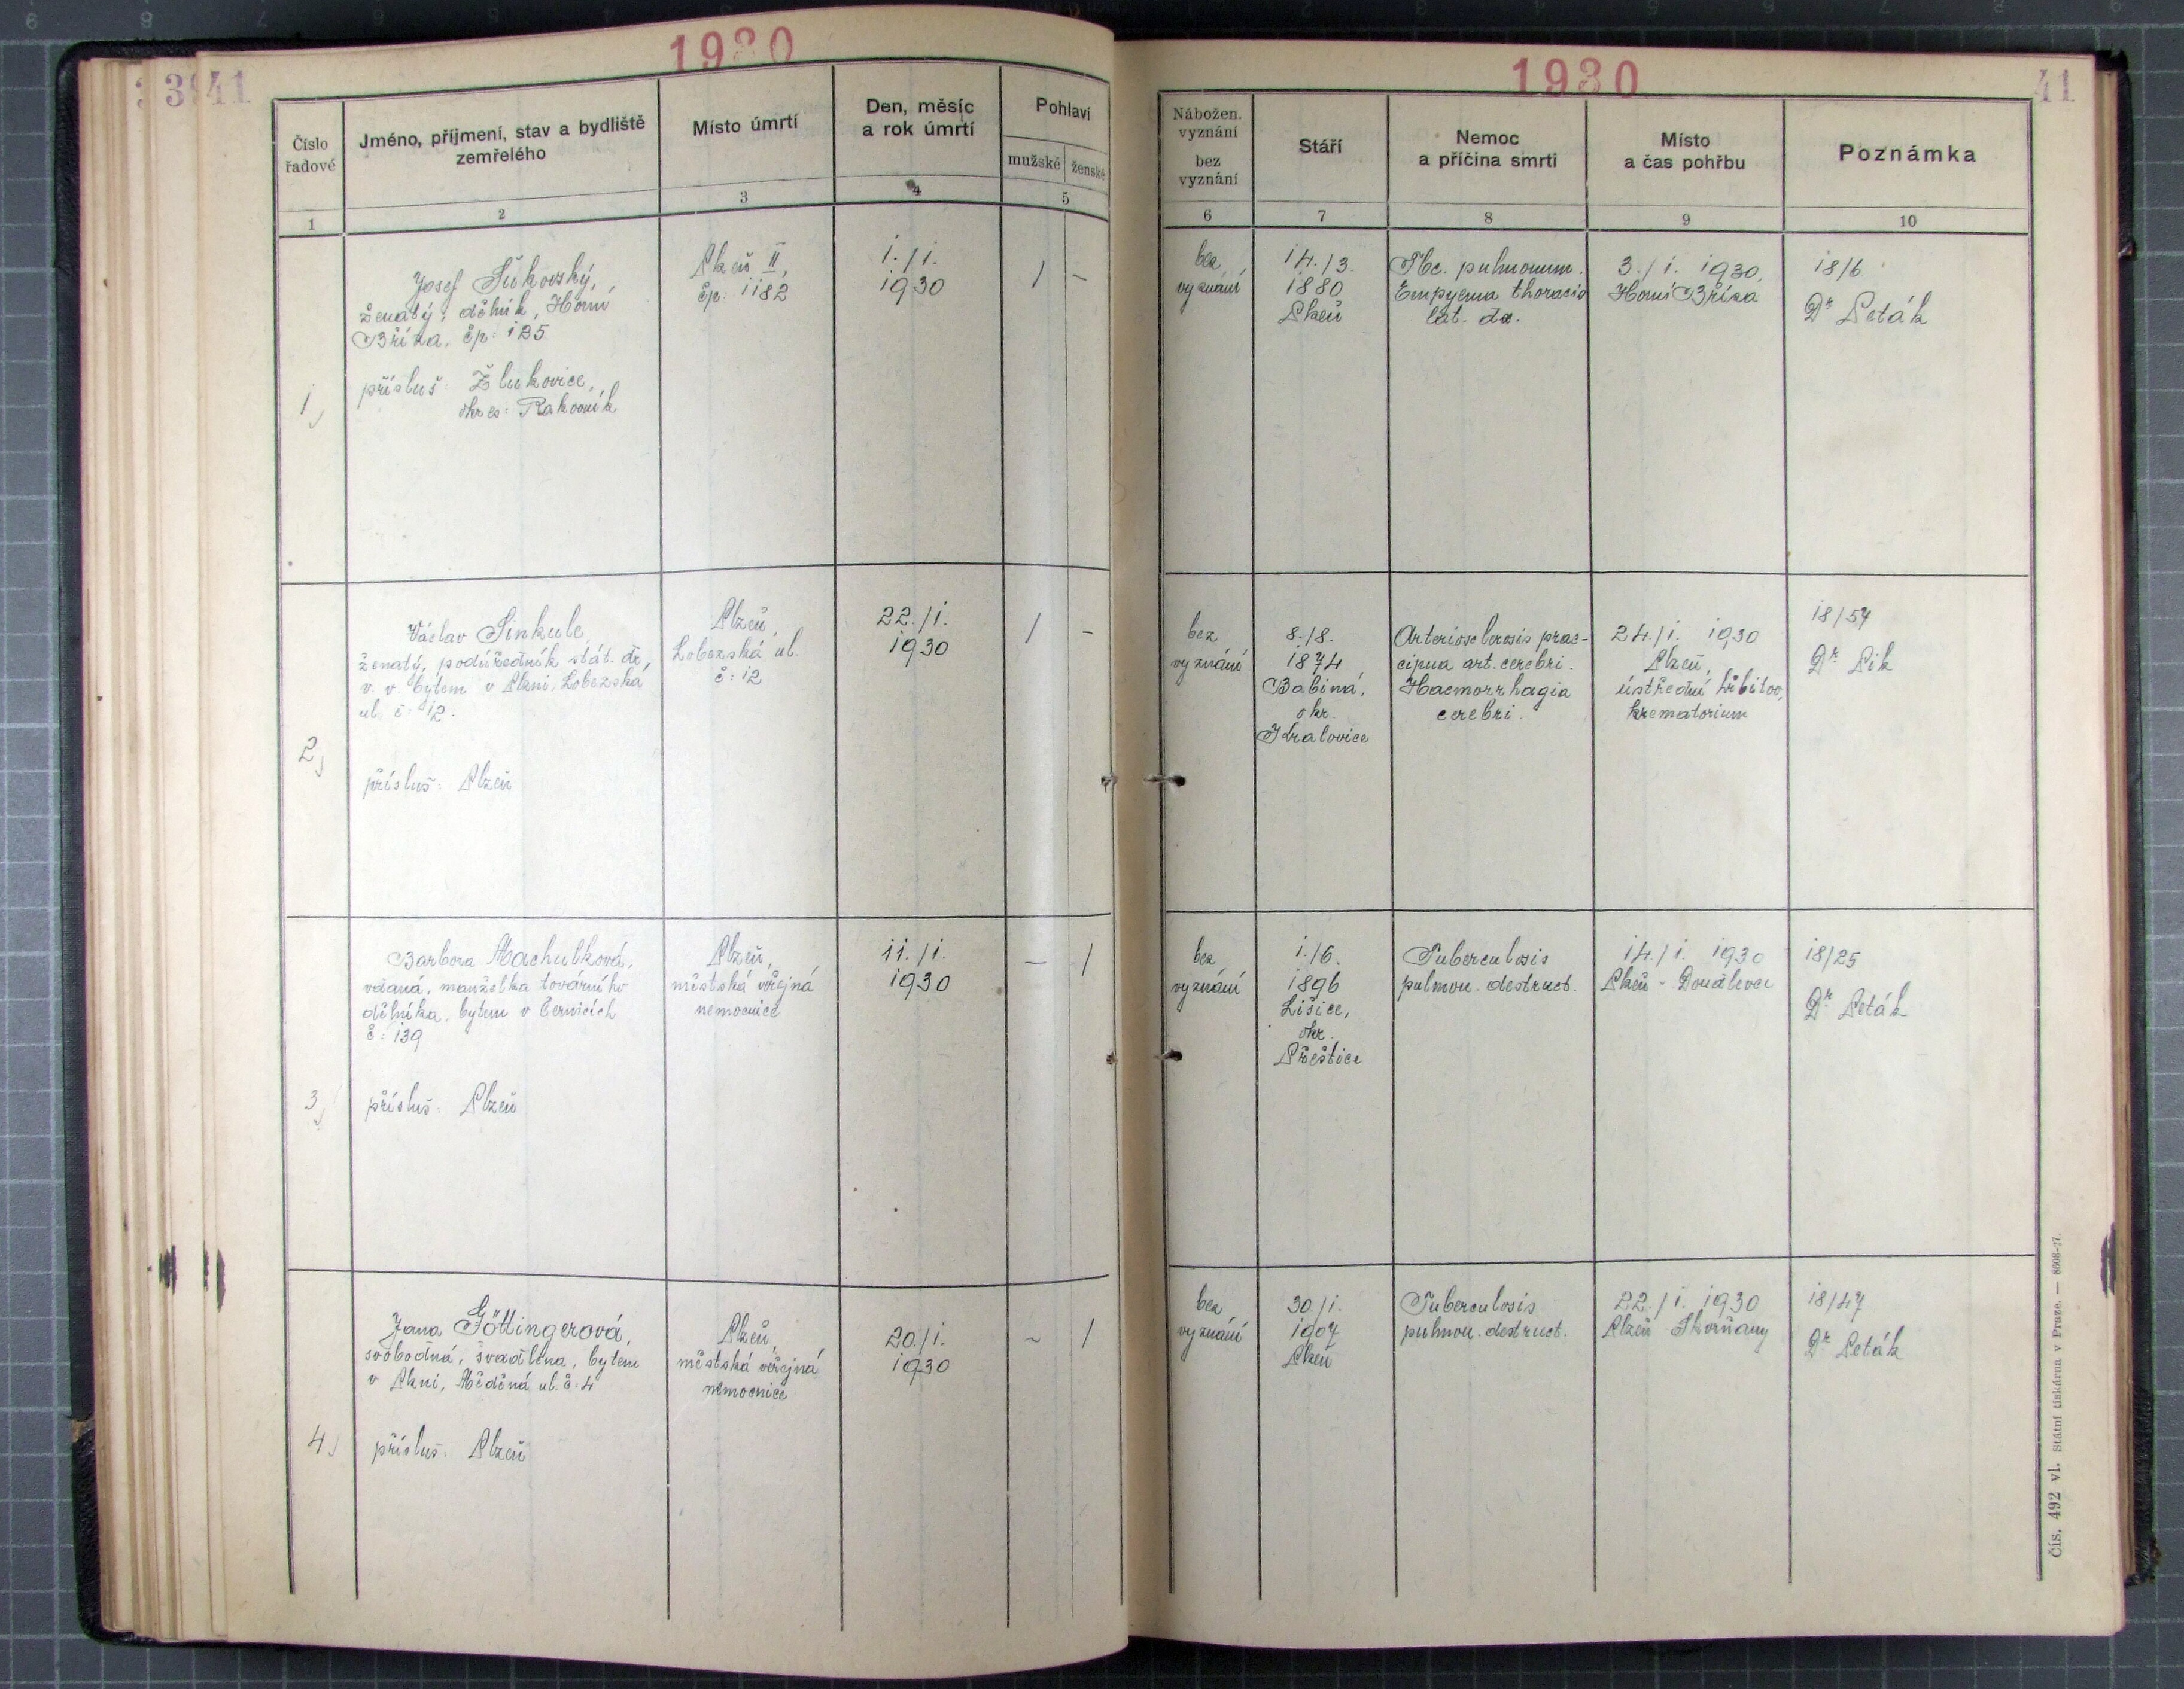 1930
41
Číslo
řadové
Jméno, příjmení, stav a bydliště
zemřelého
Místo úmrtí
Den, měsíc
a rok úmrtí
Pohlaví
mužské
ženské
1
2
3
4
5
1)
Josef Sukovský,
ženatý, dělník, Horní
Bříza, čp: 125
přísluš: Žlukovice,
okres: Rakovník
Plzeň II,
čp: 1182
1./1.
1930
/
-
2)
Václav Sinkule,
ženatý, podúředník stát. dr,
v. v. bytem v Plzni, Lobezská
ul. č: 12.
přísluš: Plzeň
Plzeň,
Lobezská ul.
č: 12
22./1.
1930
/
-
3)
Barbora Machulková,
vdaná, manželka továrního
dělníka, bytem v Černicích
č: 139
přísluš: Plzeň
Plzeň,
městská veřejná
nemocnice
11./1.
1930
-
/
4)
Jana Göttingerová,
svobodná, švadlena, bytem
v Plzni, Měděná ul. č: 4
přísluš: Plzeň
Plzeň,
městská veřejná
nemocnice
20./1.
1930
-
/
1930
41
Nábožen.
vyznání
bez
vyznání
Stáří
Nemoc
a příčina smrti
Místo
a čas pohřbu
Poznámka
6
7
8
9
10
bez
vyznání
14./3.
1880
Plzeň
Tbc. pulmonum.
Empyema thoracis
lat. dx.
3./1. 1930,
Horní Bříza
18/6.
Dr Peták
bez
vyznání
8./8.
1874
Babiná,
okr.
Kralovice
Arteriosclerosis prae-
cipua art. cerebri.
Haemorrhagia
cerebri.
24./1. 1930
Plzeň,
ústřední hřbitov,
krematorium
18/57
Dr. Pik
bez
vyznání
1./6.
1896
Lišice,
okr.
Přeštice
Tuberculosis
pulmon. destruct.
14./1. 1930
Plzeň - Doudlevce
18/25
Dr. Peták
bez
vyznání
30./1.
1907
Plzeň
Tuberculosis
pulmon. destruct.
22./1. 1930
Plzeň Skvrňany
18/47
Dr Peták
Čís. 492 vl. Státní tiskárna v Praze. — 8608-27.